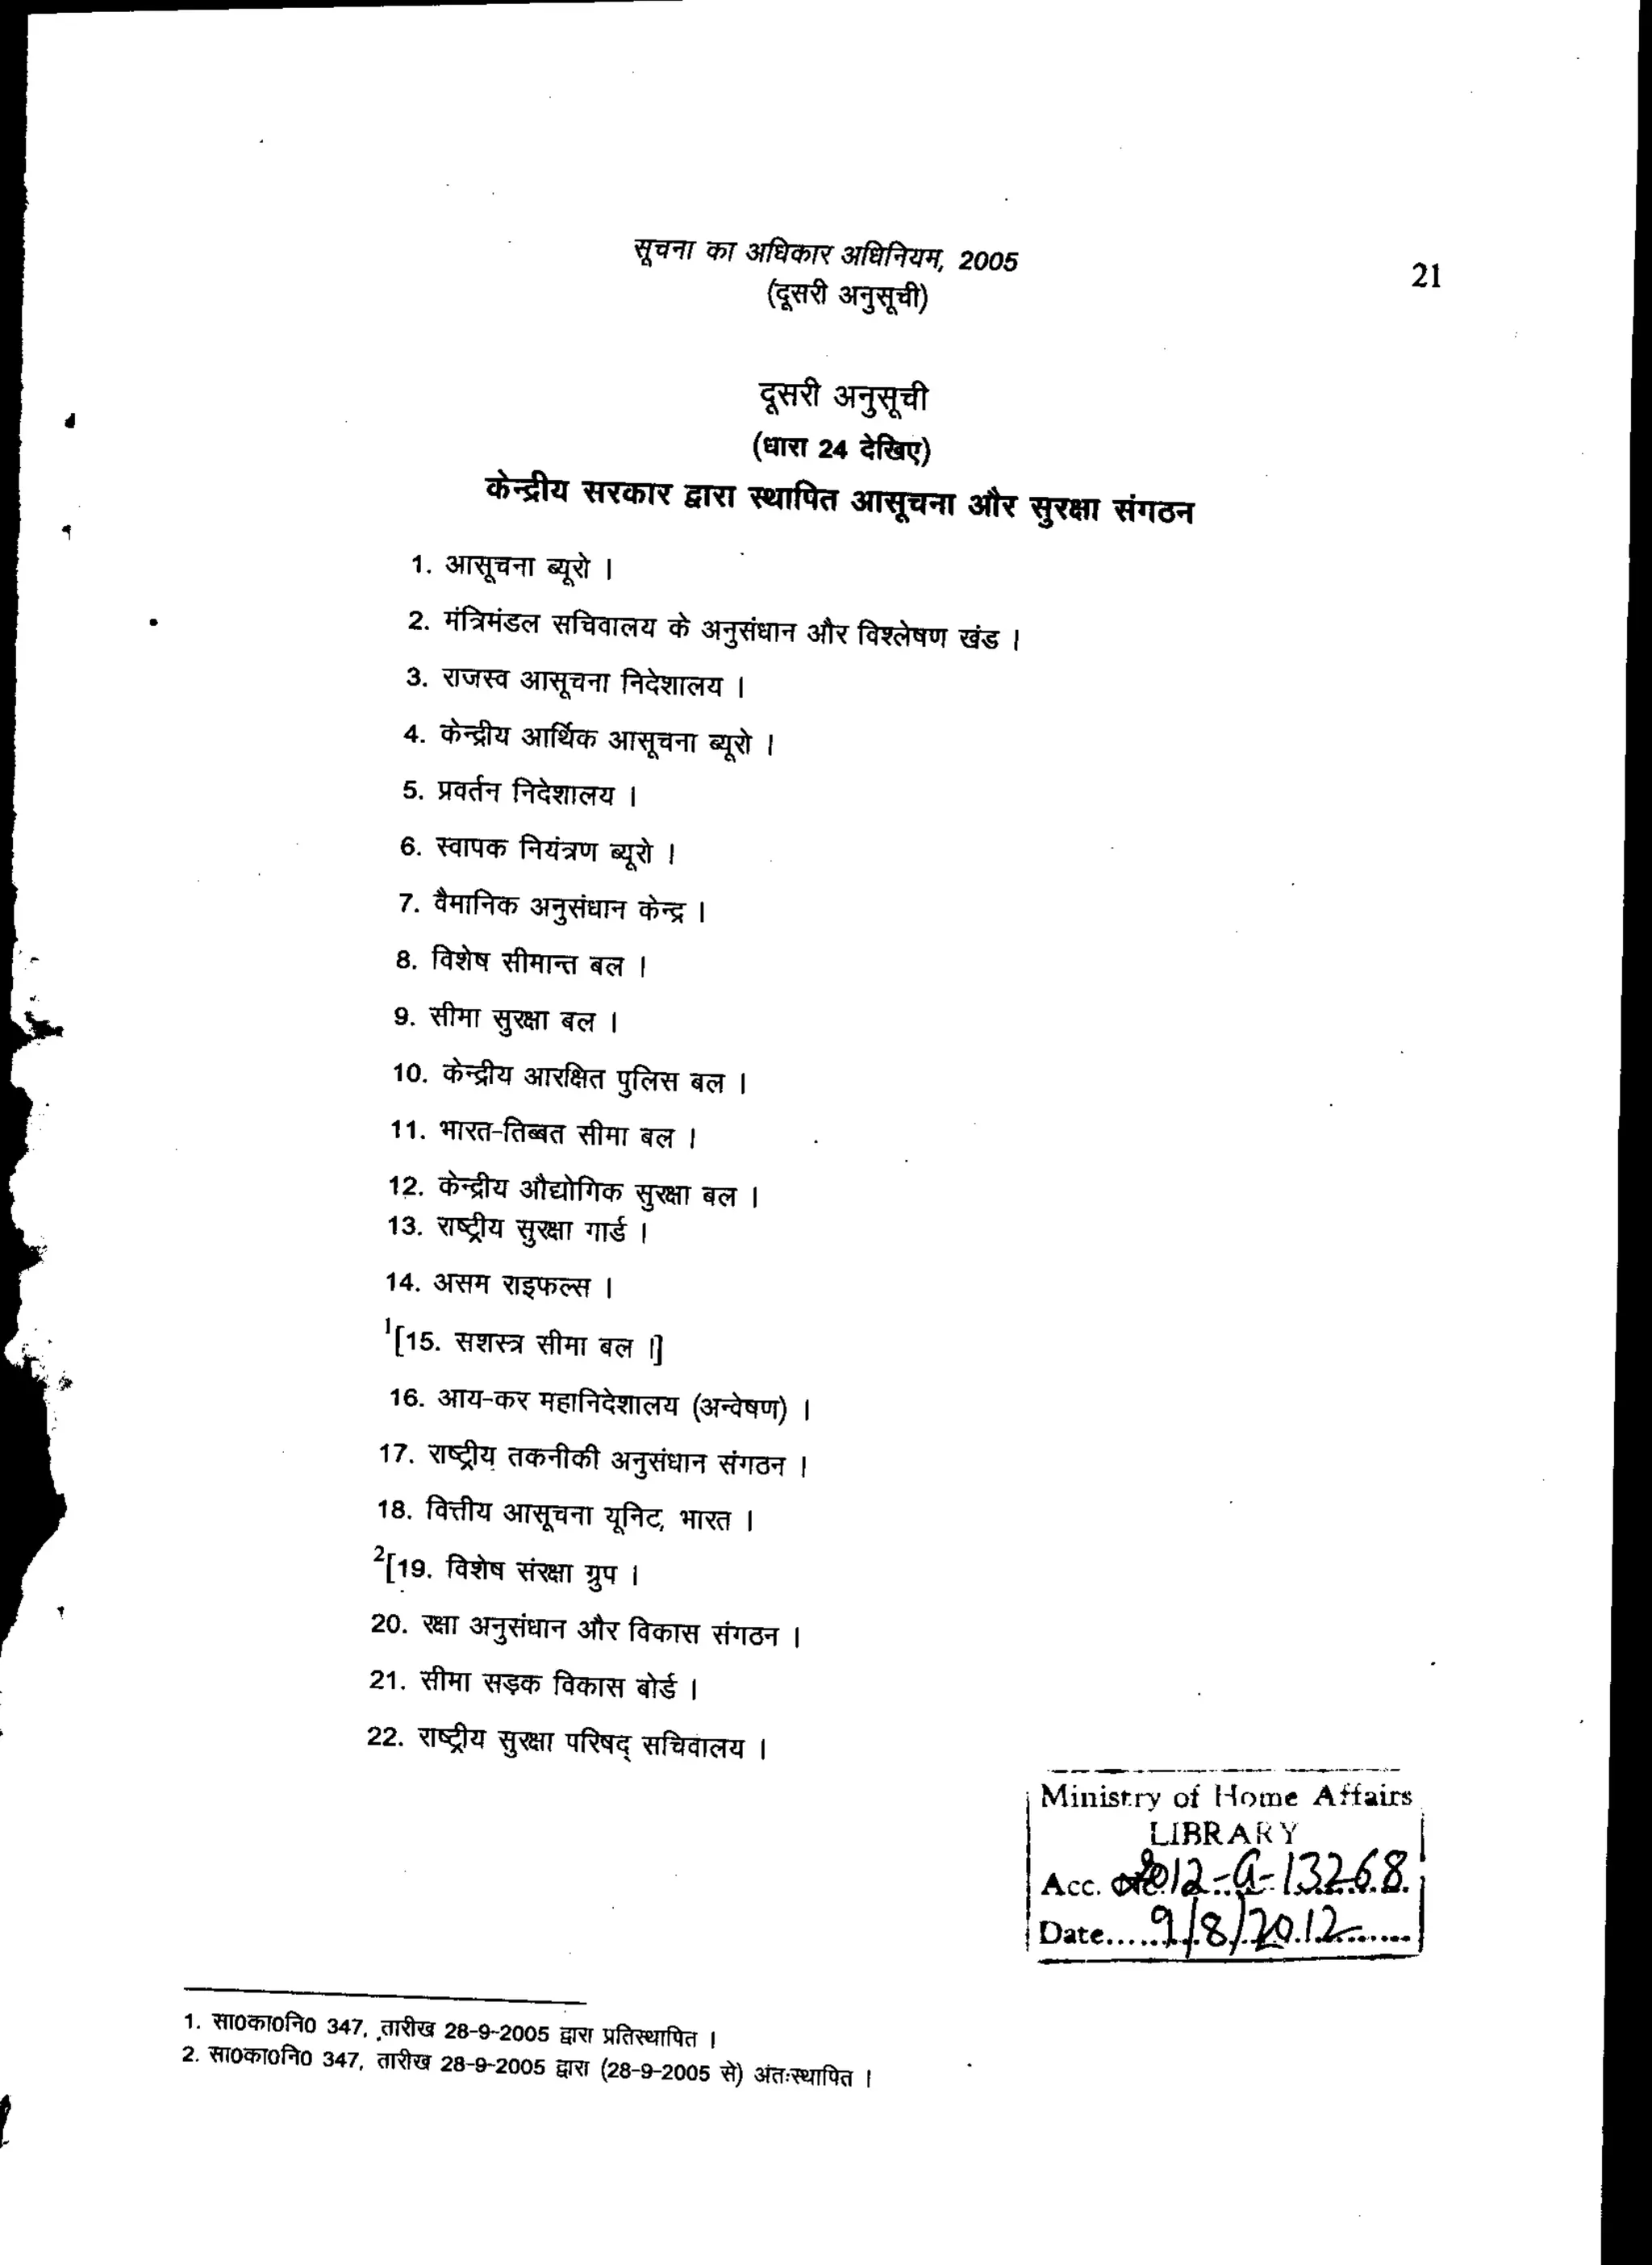 सूचना का अधिकार अधिनियम, 2005
21
(दूसरी अनुसूची)
दूसरी अनुसूची
(धारा 24 देखिए)
केन्द्रीय सरकार द्वारा स्थापित आसूचना और सुरक्षा संगठन
1. आसूचना ब्यूरो ।
2. मंत्रिमंडल सचिवालय के अनुसंधान और विश्लेषण खंड ।
3. राजस्व आसूचना निदेशालय ।
4. केन्द्रीय आर्थिक आसूचना ब्यूरो ।
5. प्रवर्तन निदेशालय ।
6. स्वापक नियंत्रण ब्यूरो ।
7. वैमानिक अनुसंधान केन्द्र ।
8. विशेष सीमान्त बल ।
9. सीमा सुरक्षा बल ।
10. केन्द्रीय आरक्षित पुलिस बल ।
11. भारत-तिब्बत सीमा बल ।
12. केन्द्रीय औद्योगिक सुरक्षा बल ।
13. राष्ट्रीय सुरक्षा गार्ड ।
14. असम राइफल्स ।
1[15. सशस्त्र सीमा बल ।]
16. आय-कर महानिदेशालय (अन्वेषण) ।
17. राष्ट्रीय तकनीकी अनुसंधान संगठन ।
18. वित्तीय आसूचना यूनिट, भारत ।
2[19. विशेष संरक्षा ग्रुप ।
20. रक्षा अनुसंधान और विकास संगठन ।
21. सीमा सड़क विकास बोर्ड ।
22. राष्ट्रीय सुरक्षा परिषद् सचिवालय ।
Ministry of Home Affairs
LIBRARY
Acc. 2012-a-13268
Date......9/8/2012.......
1. सा0का0नि0 347, तारीख 28-9-2005 द्वारा प्रतिस्थापित ।
2. सा0का0नि0 347, तारीख 28-9-2005 द्वारा (28-9-2005 से) अंतःस्थापित ।